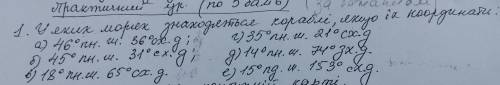 Практичний (по 5 балів) (за
1. У яких морях знаходяться кораблі, якщо їх координати:
а) 46° пн. ш. 36° сх. д; г) 35° пн. ш. 21° сх. д
б) 45° пн. ш. 31° сх. д; д) 14° пн. ш. 74° зх. д
в) 18° пн. ш. 65° сх. д. е) 15° пд. ш. 153° сх. д.
карті.